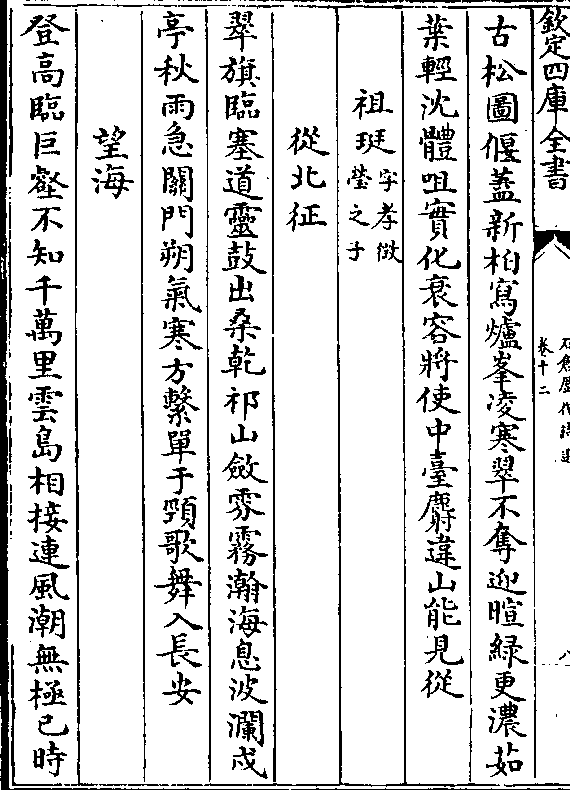 欽定四庫全書
卷十二
八
古松圖偃蓋新柏寫爐峯凌寒翠不奪迎暄綠更濃茹
葉輕沈體咀實化衰容將使中臺麝違山能見從
祖珽字孝徵
瑩之子
從北征
翠旗臨塞道靈鼓出桑乾祁山斂雰霧瀚海息波瀾戍
亭秋雨急關門朔氣寒方繫單于頸歌舞入長安
望海
登高臨巨壑不知千萬里雲島相接連風潮無極已時